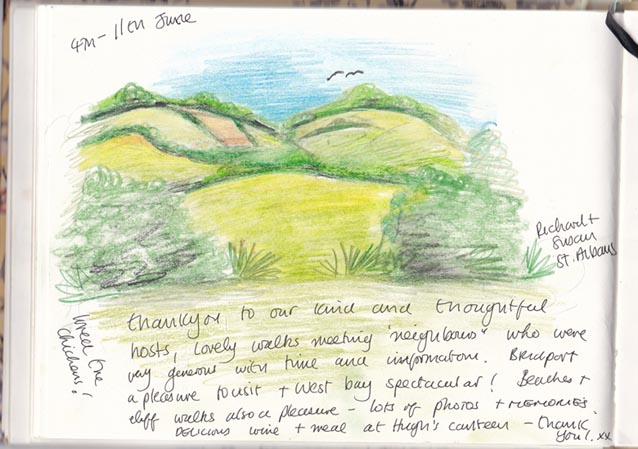 4th - 11th June
Richard +
Susan
St. Albans
loved the
chickens!
thankyou to our kind and thoughtful
hosts, Lovely walks meeting 'neighbours" who were
very generous with time and information. Bridport
a pleasure to visit + West bay spectacular! Beaches +
cliff walks also a pleasure - lots of photos + MEMORIES.
DELICIOUS wine + meal at Hugh's canteen - thank
you!. xx